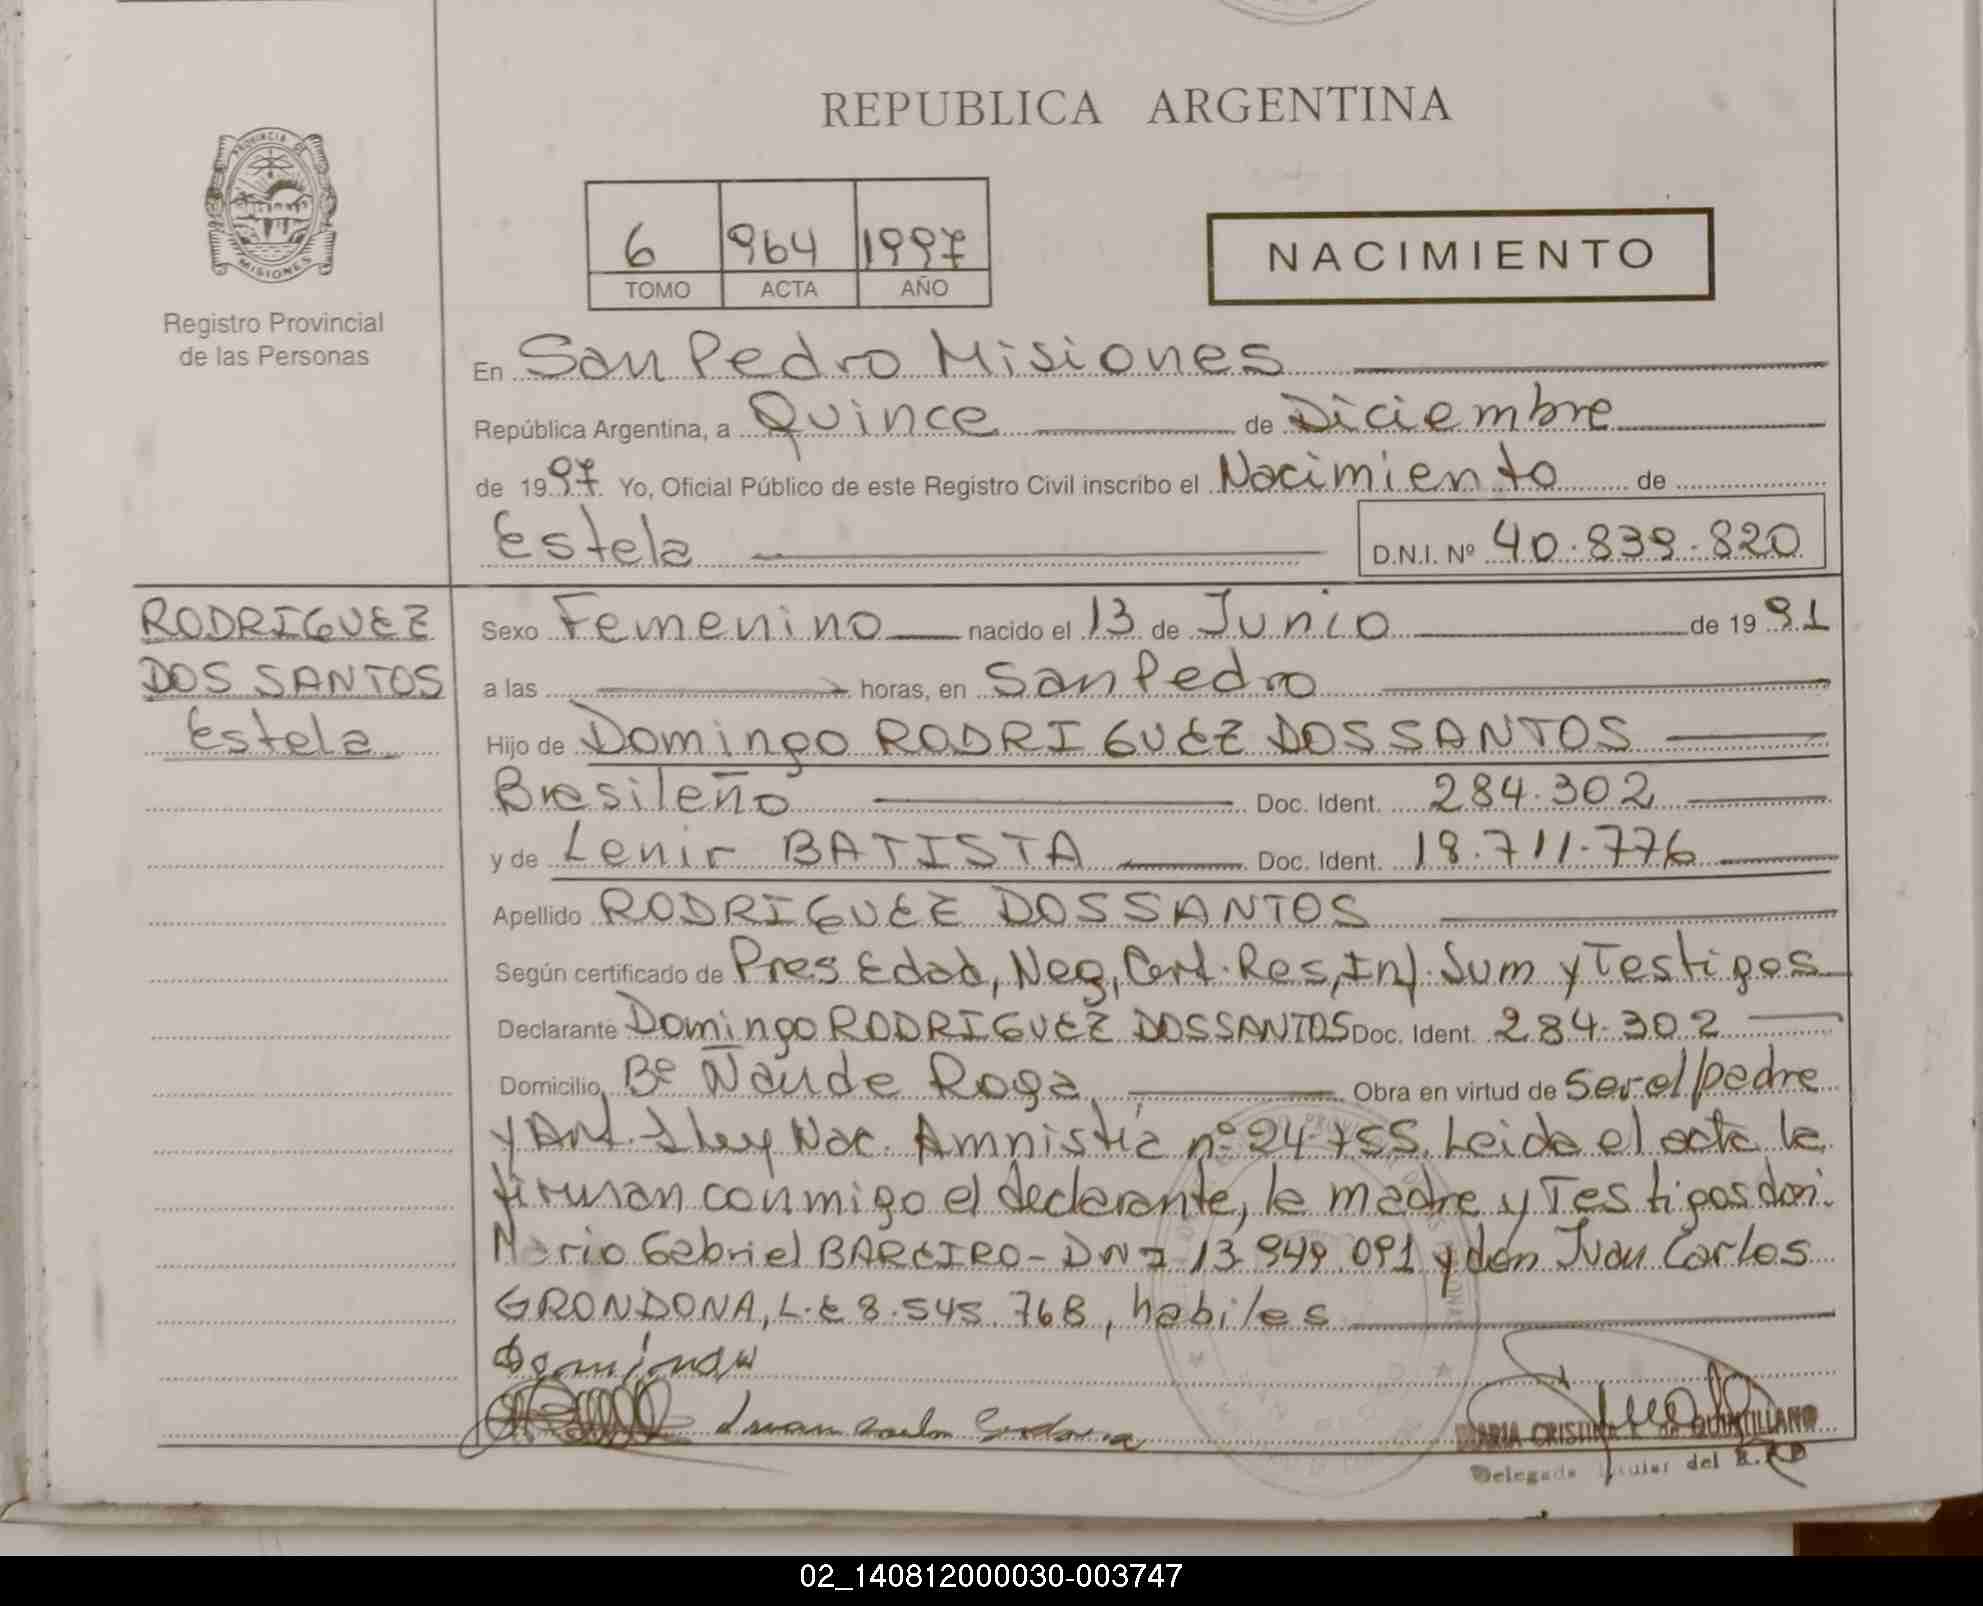 REPUBLICA ARGENTINA
PROVINCIA DE MISIONES
Registro Provincial
de las Personas
6 964 1997
TOMO ACTA AÑO
NACIMIENTO
En San Pedro Misiones
República Argentina, a Quince de Diciembre
de 1997 Yo, Oficial Público de este Registro Civil inscribo el Nacimiento de
Estela D.N.I. Nº 40.839.820
RODRIGUEZ
DOS SANTOS
Estela
Sexo Femenino nacido el 13 de Junio de 1991
a las horas, en San Pedro
Hijo de Domingo RODRIGUEZ DOS SANTOS
Brasileño Doc. Ident. 284.302
y de Lenir BATISTA Doc. Ident. 18.711.776
Apellido RODRIGUEZ DOS SANTOS
Según certificado de Pres Edad, Neg, Cert. Res, Inf. Sum y Testigos
Declarante Domingo RODRIGUEZ DOS SANTOS Doc. Ident. 284.302
Domicilio Bº Ñande Roga Obra en virtud de Ser el padre
y Art. 1 ley Nac. Amnistia nº 24.755. Leida el acta la
firman conmigo el declarante, la madre y Testigos don:
Mario Gabriel BAREIRO - DNI 13.949.091 y don Juan Carlos
GRONDONA, L.E 8.545.768, habiles
Juan Carlos
MARIA CRISTINA de QUINTILLANO
Delegada Titular del R.P.P
02_140812000030-003747